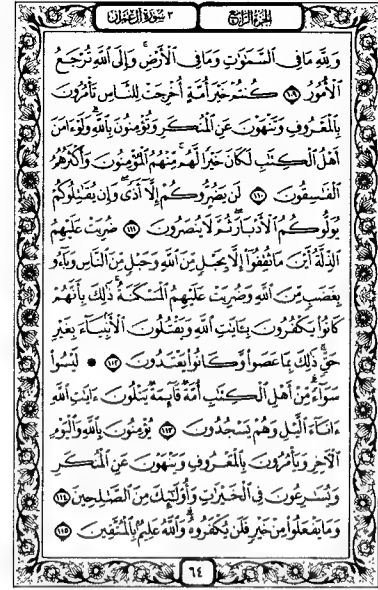 الجزء الرابع
٣ سورة آل عمران
وَلِلَّهِ مَا فِي ٱلسَّمَٰوَٰتِ وَمَا فِي ٱلْأَرْضِ ۚ وَإِلَى ٱللَّهِ تُرْجَعُ
ٱلْأُمُورُ ١٠٩ كُنتُمْ خَيْرَ أُمَّةٍ أُخْرِجَتْ لِلنَّاسِ تَأْمُرُونَ
بِٱلْمَعْرُوفِ وَتَنْهَوْنَ عَنِ ٱلْمُنكَرِ وَتُؤْمِنُونَ بِٱللَّهِ ۗ وَلَوْ ءَامَنَ
أَهْلُ ٱلْكِتَٰبِ لَكَانَ خَيْرًا لَّهُم ۚ مِّنْهُمُ ٱلْمُؤْمِنُونَ وَأَكْثَرُهُمُ
ٱلْفَٰسِقُونَ ١١٠ لَن يَضُرُّوكُمْ إِلَّآ أَذًى ۖ وَإِن يُقَٰتِلُوكُمْ
يُوَلُّوكُمُ ٱلْأَدْبَارَ ثُمَّ لَا يُنصَرُونَ ١١١ ضُرِبَتْ عَلَيْهِمُ
ٱلذِّلَّةُ أَيْنَ مَا ثُقِفُوٓا۟ إِلَّا بِحَبْلٍ مِّنَ ٱللَّهِ وَحَبْلٍ مِّنَ ٱلنَّاسِ وَبَآءُو
بِغَضَبٍ مِّنَ ٱللَّهِ وَضُرِبَتْ عَلَيْهِمُ ٱلْمَسْكَنَةُ ۚ ذَٰلِكَ بِأَنَّهُمْ
كَانُوا۟ يَكْفُرُونَ بِـَٔايَٰتِ ٱللَّهِ وَيَقْتُلُونَ ٱلْأَنۢبِيَآءَ بِغَيْرِ
حَقٍّ ۚ ذَٰلِكَ بِمَا عَصَوا۟ وَّكَانُوا۟ يَعْتَدُونَ ١١٢ ۞ لَيْسُوا۟
سَوَآءً ۗ مِّنْ أَهْلِ ٱلْكِتَٰبِ أُمَّةٌ قَآئِمَةٌ يَتْلُونَ ءَايَٰتِ ٱللَّهِ
ءَانَآءَ ٱلَّيْلِ وَهُمْ يَسْجُدُونَ ١١٣ يُؤْمِنُونَ بِٱللَّهِ وَٱلْيَوْمِ
ٱلْءَاخِرِ وَيَأْمُرُونَ بِٱلْمَعْرُوفِ وَيَنْهَوْنَ عَنِ ٱلْمُنكَرِ
وَيُسَٰرِعُونَ فِي ٱلْخَيْرَٰتِ وَأُو۟لَٰٓئِكَ مِنَ ٱلصَّٰلِحِينَ ١١٤
وَمَا يَفْعَلُوا۟ مِنْ خَيْرٍ فَلَن يُكْفَرُوهُ ۗ وَٱللَّهُ عَلِيمٌۢ بِٱلْمُتَّقِينَ ١١٥
٦٤